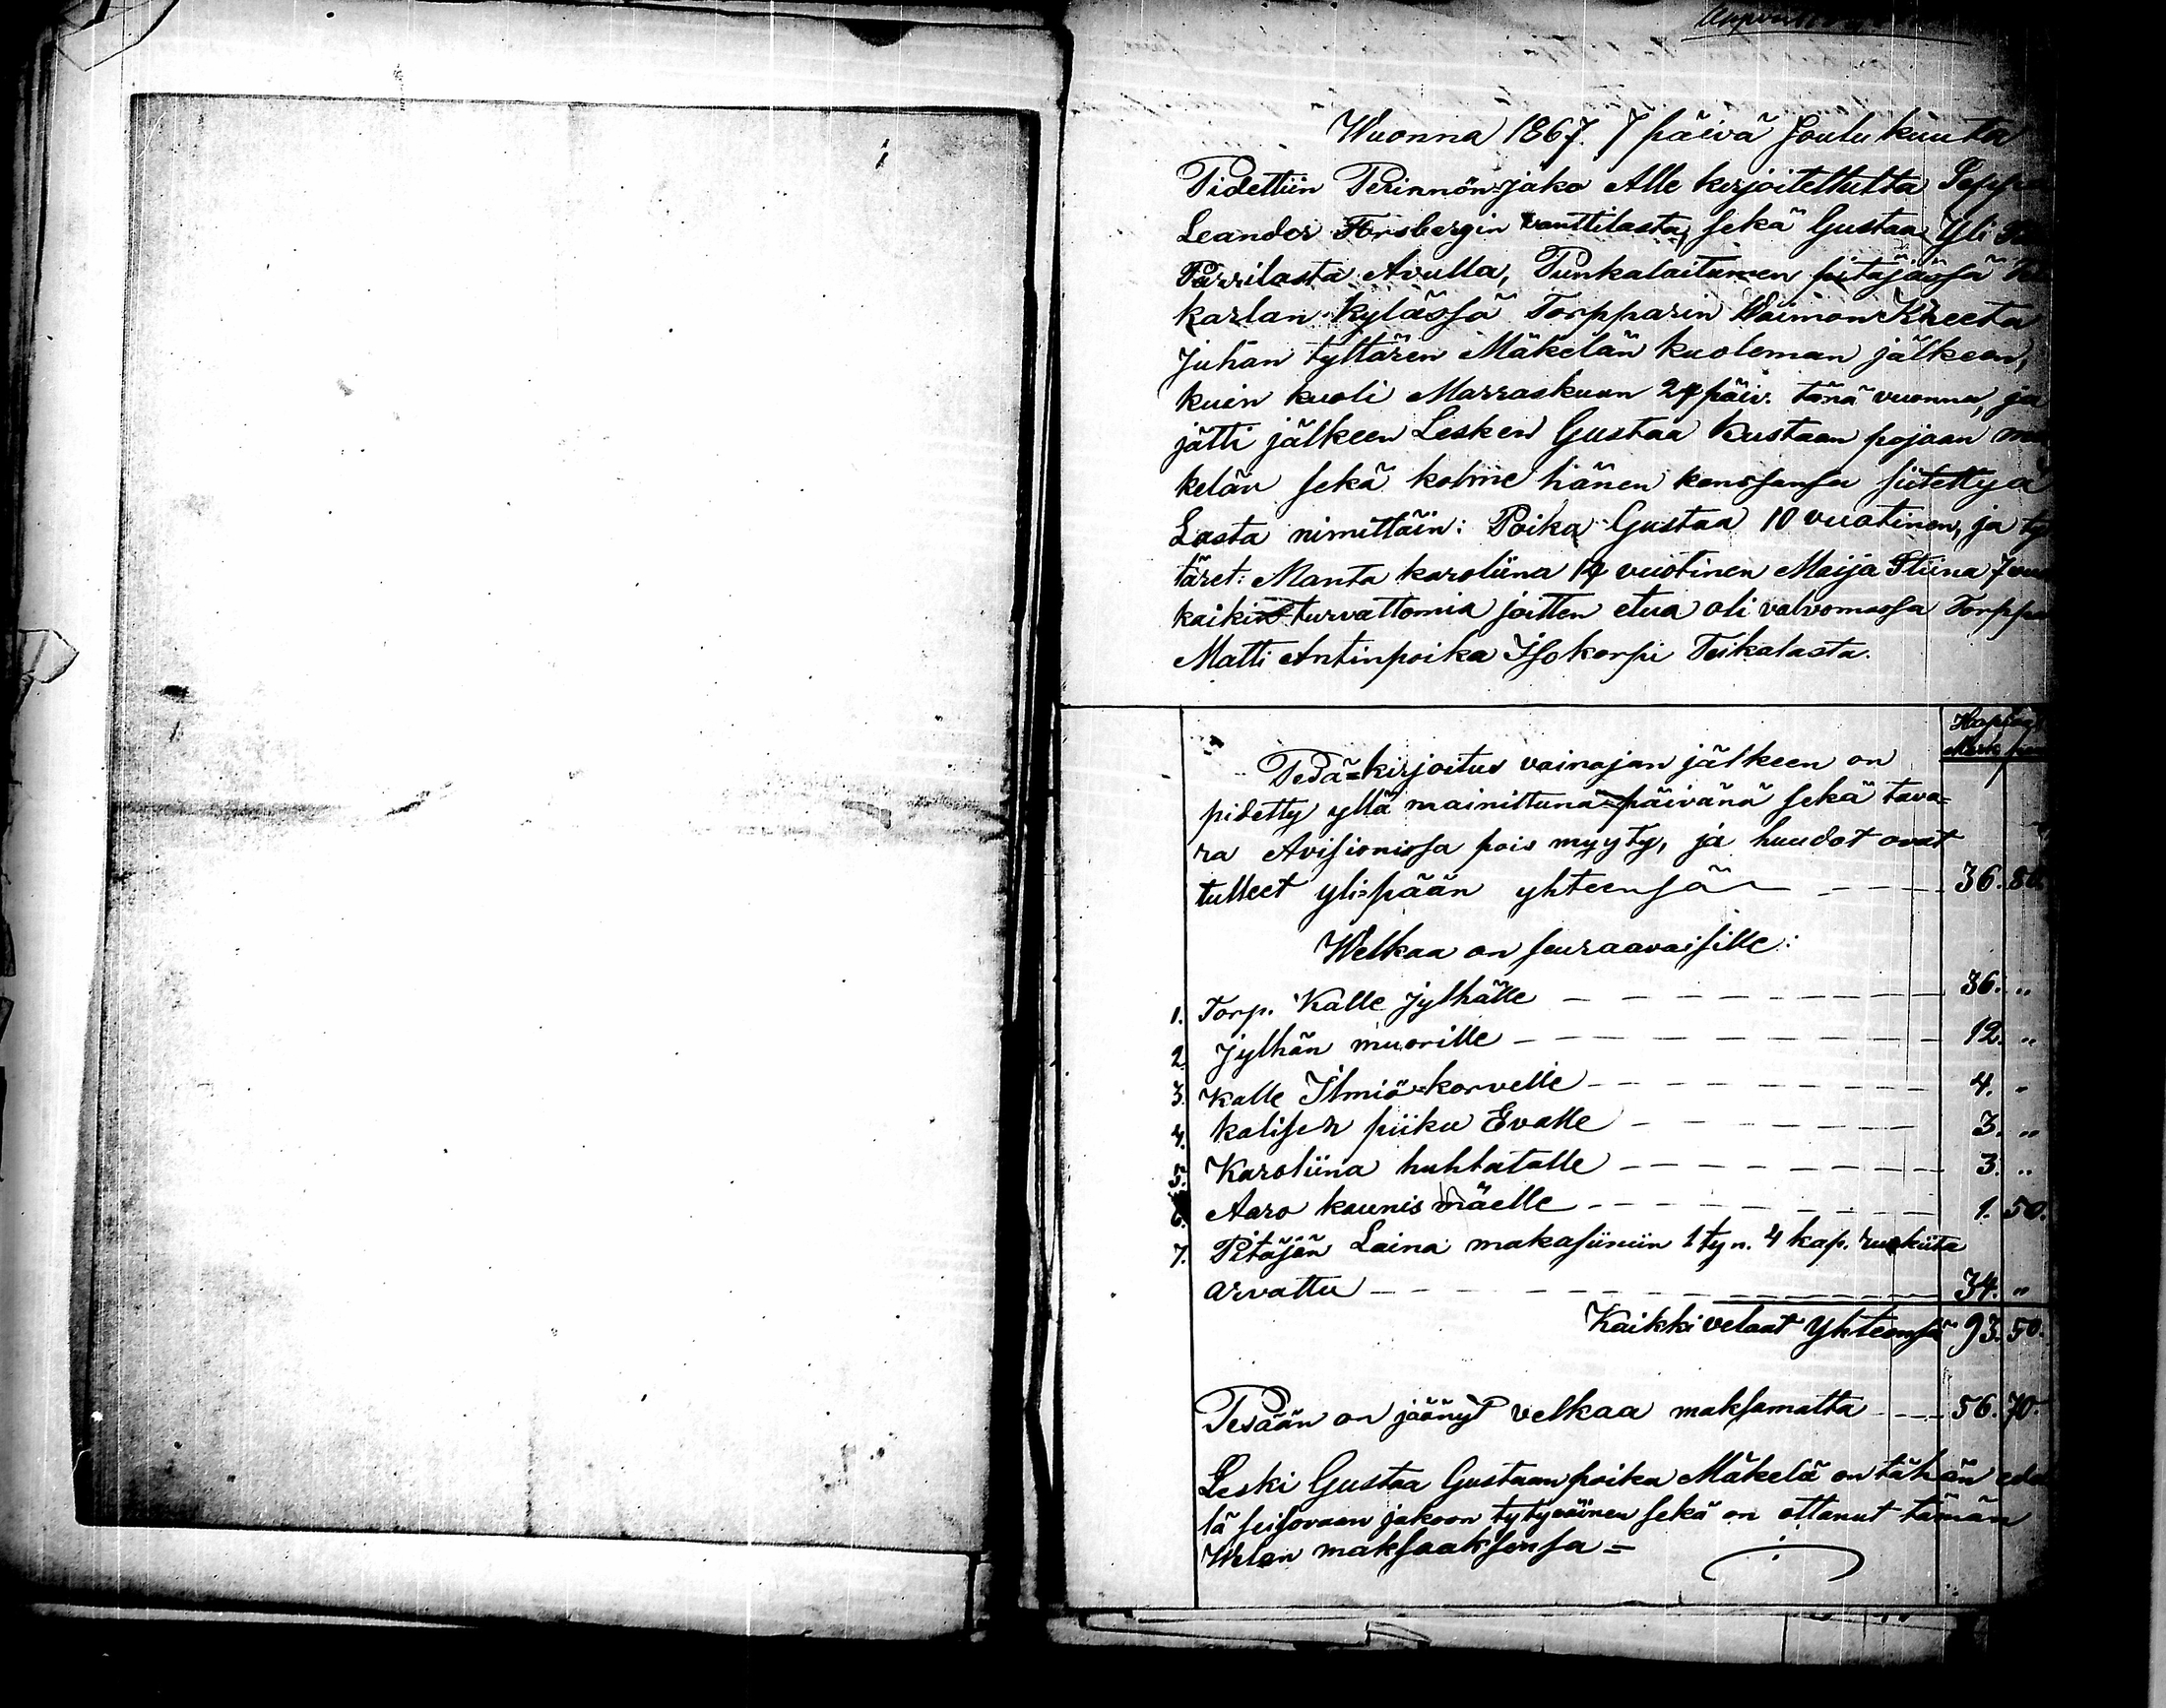 Wuonna 1867. 7 päivä Joulukuuta
Pidettiin Perinnön=jako Alle kirjoitettulta
Leander Forsbergin vanttilasta, sekä Gustaa Yli
Pärrilasta Avulla, Punkalaitumen pitäjässä
karlan kylässä Torpparin Waimon Kreeta
Juhan tyttären Mäkelän kuoleman jälkeen,
kuin kuoli Marraskuun 24 päiv. tänä vuonna, ja
jätti jälkeen Lesken Gustaa Kustaan pojaan
kelän sekä kolme hänen kanssansa siitettyä
Lasta nimittäin: Poika Gustaa 10 vuotinen, ja ty
täret: Manta karoliina 14 vuotinen Maija Stiina 7
kaikin turvattomia joitten etua oli valvomassa Torppa
Matti Antinpoika Isokorpi Teikalasta.
Mark
Pesä=kirjoitus vainajan jälkeen on
pidetty yllä mainittuna päivänä sekä tava=
ra Avisionissa pois myyty, ja huudot ovat
tulleet yli=pään yhteensä 36. 80.
Welkaa on seuraavaisille:
1. Torp. Kalle Jylhälle 36. "
2. Jylhän muorille 12. "
3. Kalle Ilmiö=korvelle 4. "
4. kalisen piiku Evalle 3. "
5. Karoliina huhtatalle 3. "
6. Aaro kaunis mäelle 1. 50.
7. Pitäjän Laina makasiiniin 1 tyn. 4 kap. rukiita
arvattu 34. "
Kaikki velaat Yhteensä 93. 50.
Pesään on jäänyt velkaa maksamatta 56. 70.
Leski Gustaa Gustaanpoika Mäkelä on tähän ede
lä seisovaan jakoon tytyväinen sekä on ottanut tämän
Welan maksaaksensa =